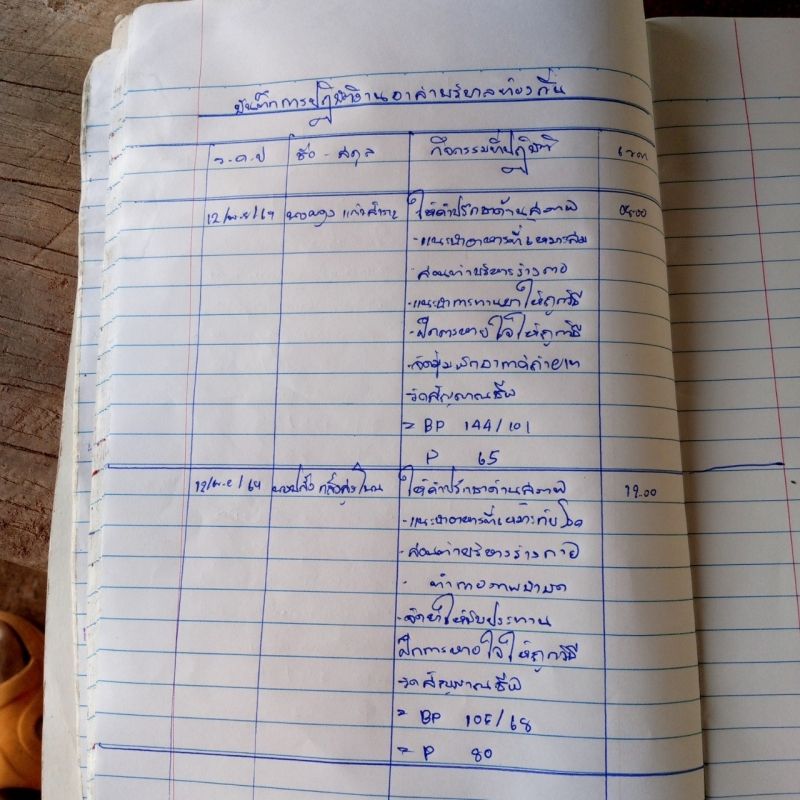 บันทึกการปฏิบัติงานอาสาบริบาลท้องถิ่น
ว.ด.ป ชื่อ - สกุล กิจกรรมที่ปฏิบัติ เวลา
12/พ.ย/64 แก้วสำราญ ให้คำปรึกษาด้านสุขภาพ 09.00
- แนะนำอาหารที่เหมาะสม
สอนท่าบริหารร่างกาย
- แนะนำการทานยาให้ถูกวิธี
- ฝึกการหายใจให้ถูกวิธี
- วัดสัญญาณชีพ
= BP 144/101
P 65
12/พ.ย/64 ให้คำปรึกษาด้านสุขภาพ
- แนะนำอาหารที่เหมาะกับโรค
- สอนท่าบริหารร่างกาย
- ทำกายภาพบำบัด
- จัดยาให้รับประทาน
ฝึกการหายใจให้ถูกวิธี
- วัดสัญญาณชีพ
= BP 106/68
= P 80